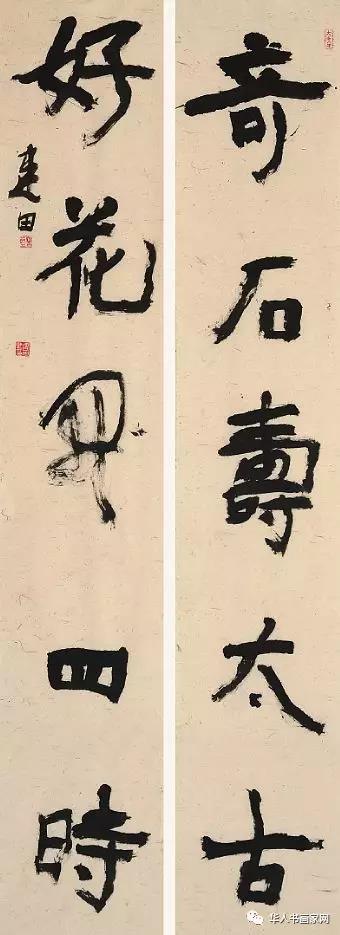 奇石壽太古
好花開四時
田
华人书画家网